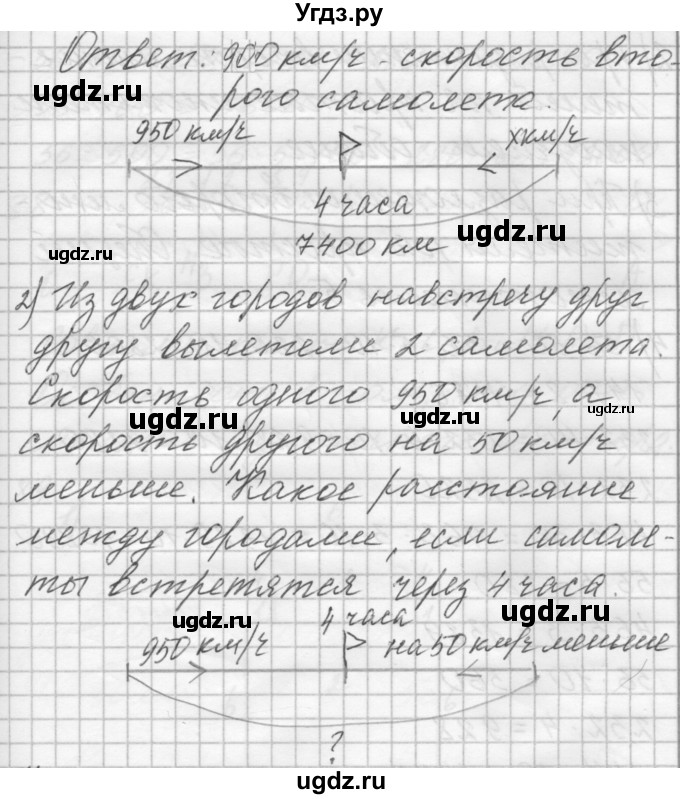 Угдз.ру
Ответ: 900 км/ч - скорость вто-
ugdz.ru ugdz.ru
рого самолета.
950 км/ч х км/ч
4 часа
ugdz.ru ugdz.ru
7400 км
2) Из двух городов навстречу друг
другу вылетели 2 самолета.
Скорость одного 950 км/ч, а
ugdz.ru ugdz.ru ugdz.ru
скорость другого на 50 км/ч
меньше. Какое расстояние
между городами, если самоле-
ты встретятся через 4 часа.
ugdz.ru ugdz.ru
4 часа
950 км/ч на 50 км/ч меньше
ugdz.ru ugdz.ru
?
ugdz.ru